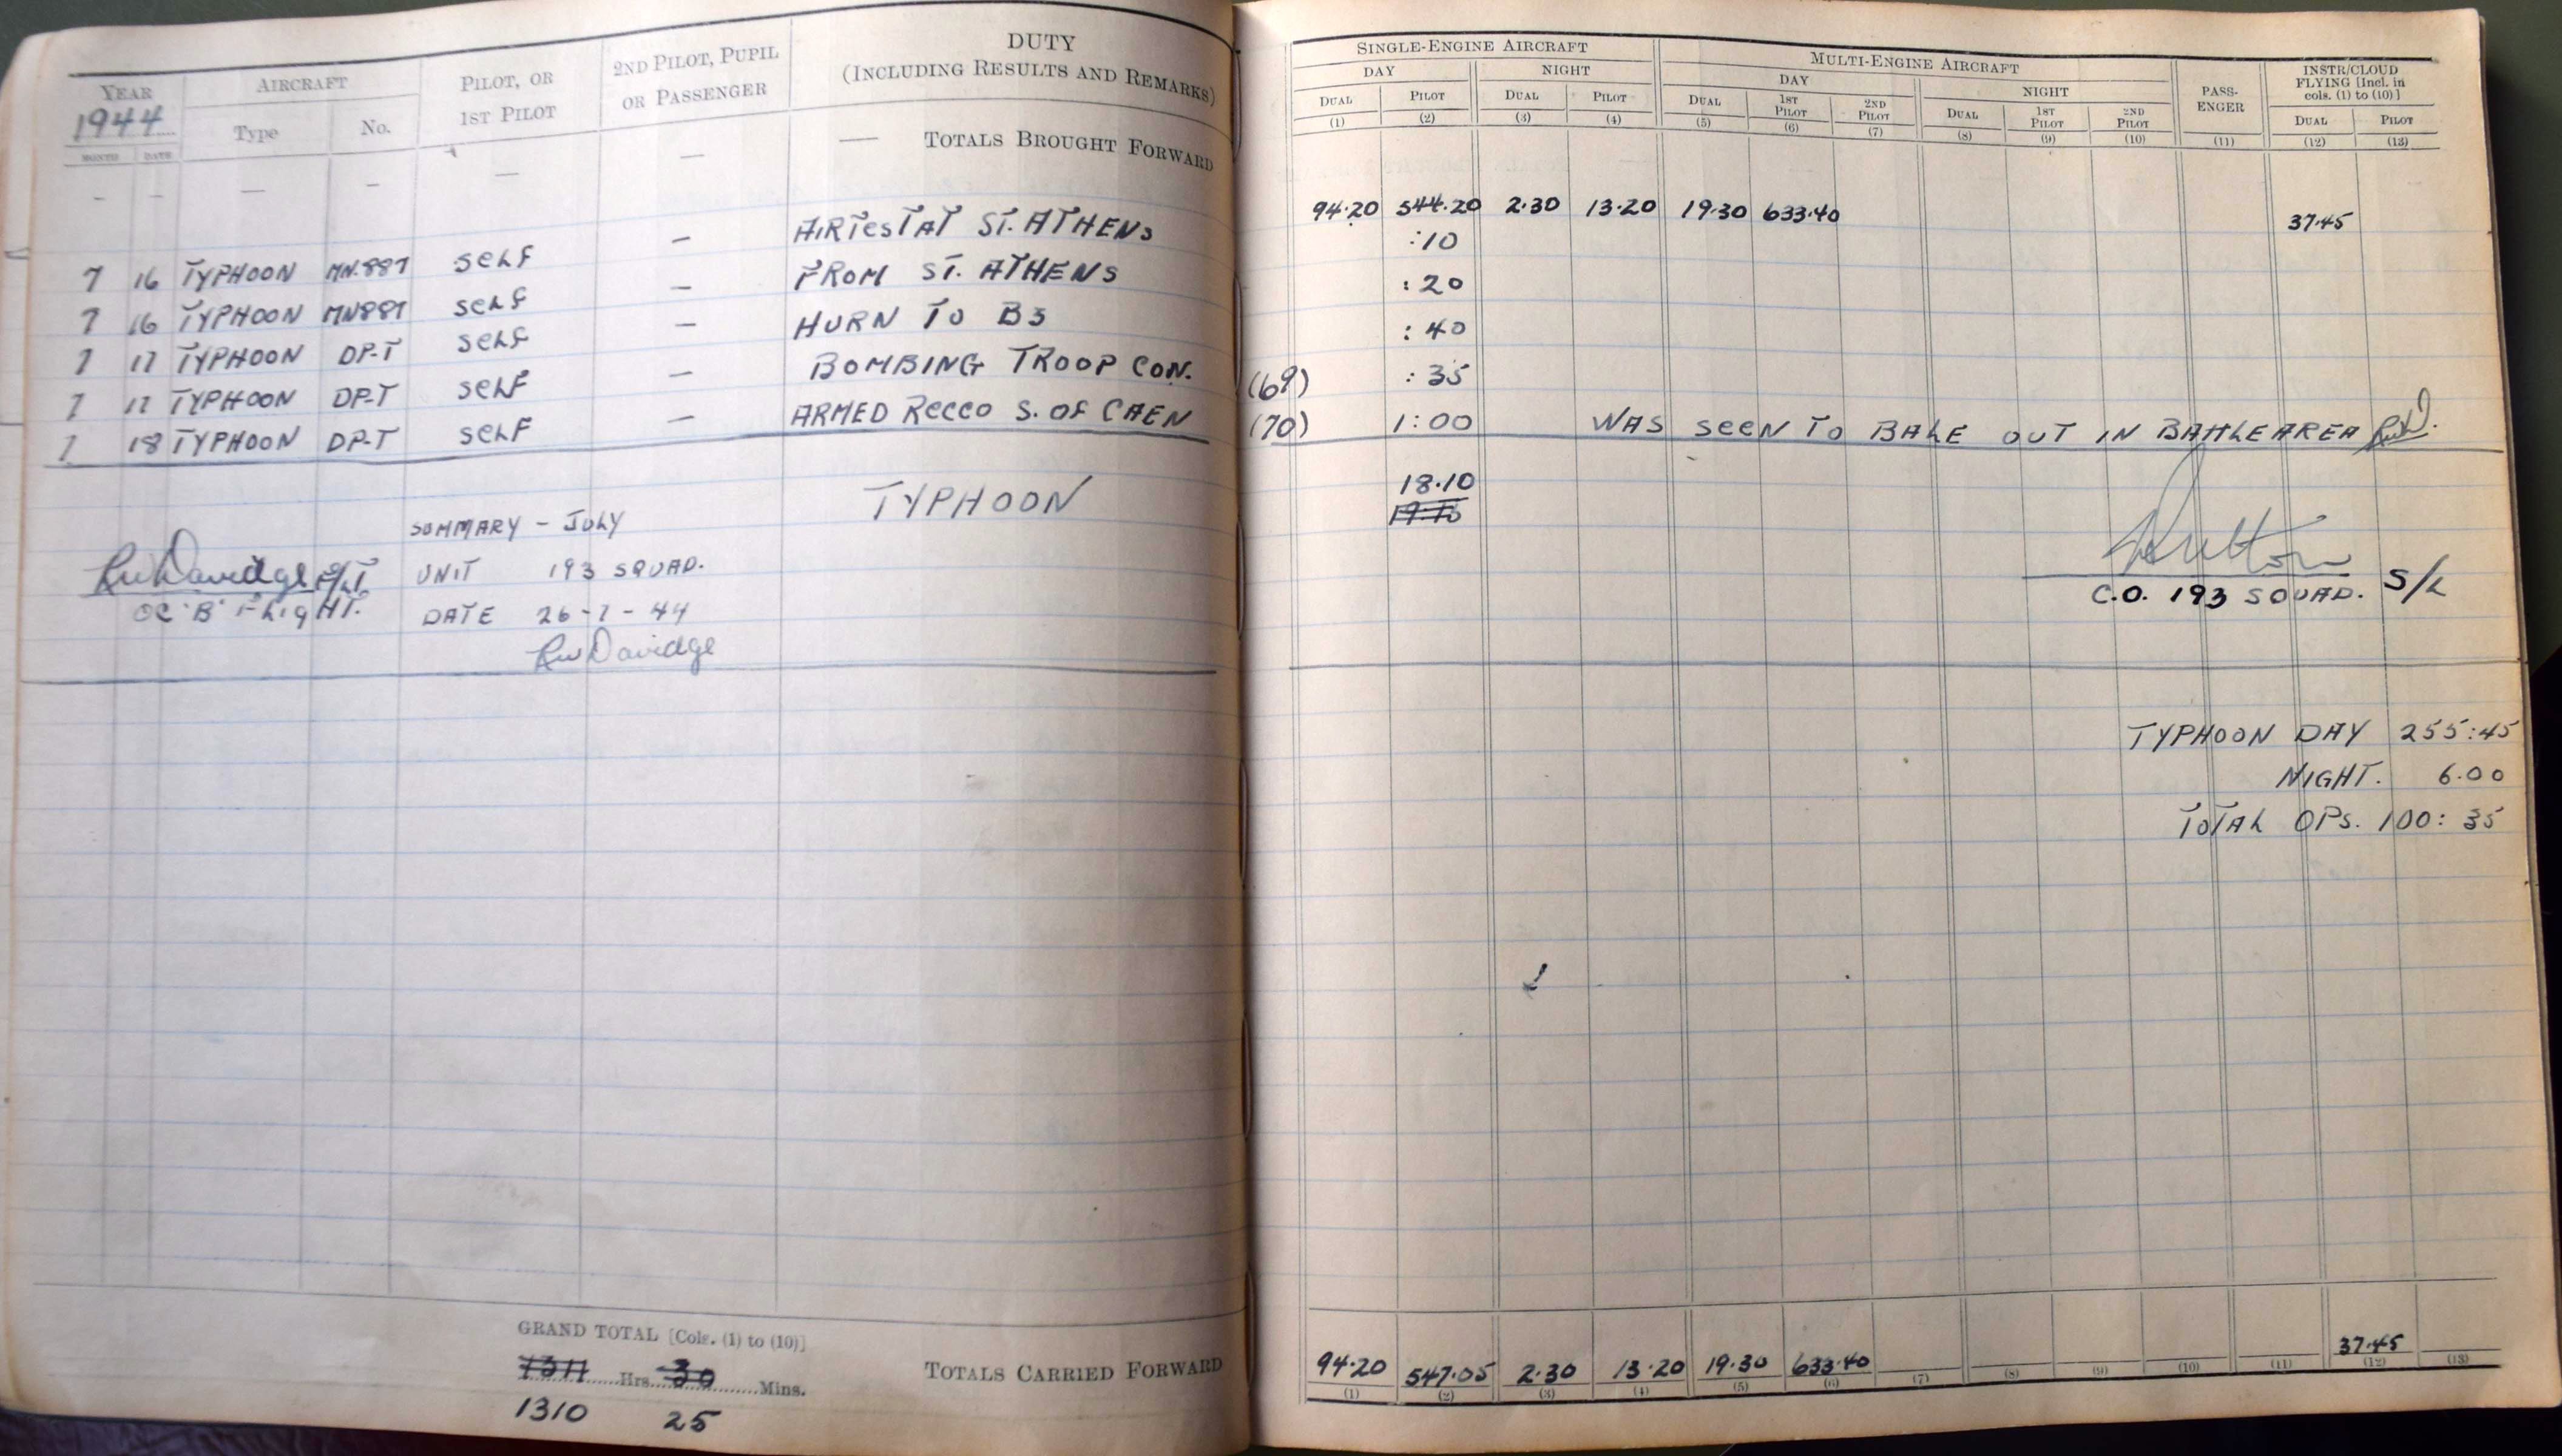 YEAR AIRCRAFT PILOT, OR 1ST PILOT 2ND PILOT, PUPIL OR PASSENGER DUTY (INCLUDING RESULTS AND REMARKS)
1944 Type No.
MONTH DATE
— — — — — — — TOTALS BROUGHT FORWARD
7 16 TYPHOON MN.887 SELF — AIRTEST AT ST. ATHENS
7 16 TYPHOON MN887 SELF — FROM ST. ATHENS
7 17 TYPHOON DP-T SELF — HURN TO B3
7 17 TYPHOON DP-T SELF — BOMBING TROOP CON.
7 18 TYPHOON DP-T SELF — ARMED RECCO S. OF CAEN
SUMMARY - JULY TYPHOON
RW Davidge F/LT. UNIT 193 SQUAD.
OC 'B' FLIGHT. DATE 26-7-44
RW Davidge
GRAND TOTAL [Cols. (1) to (10)]
1311 Hrs. 30 Mins.
1310 25
TOTALS CARRIED FORWARD
SINGLE-ENGINE AIRCRAFT MULTI-ENGINE AIRCRAFT PASS-ENGER INSTR/CLOUD FLYING [Incl. in cols. (1) to (10)]
DAY NIGHT DAY NIGHT
DUAL PILOT DUAL PILOT DUAL 1ST PILOT 2ND PILOT DUAL 1ST PILOT 2ND PILOT DUAL PILOT
(1) (2) (3) (4) (5) (6) (7) (8) (9) (10) (11) (12) (13)
94.20 544.20 2.30 13.20 19.30 633.40 37.45
:10
:20
:40
(69) :35
(70) 1:00 WAS SEEN TO BALE OUT IN BATTLE AREA RWD.
18.10
19.10
C.O. 193 SQUAD. S/L
TYPHOON DAY 255:45
NIGHT. 6.00
TOTAL OPS. 100:35
94.20 547.05 2.30 13.20 19.30 633.40 37.45
(1) (2) (3) (4) (5) (6) (7) (8) (9) (10) (11) (12) (13)